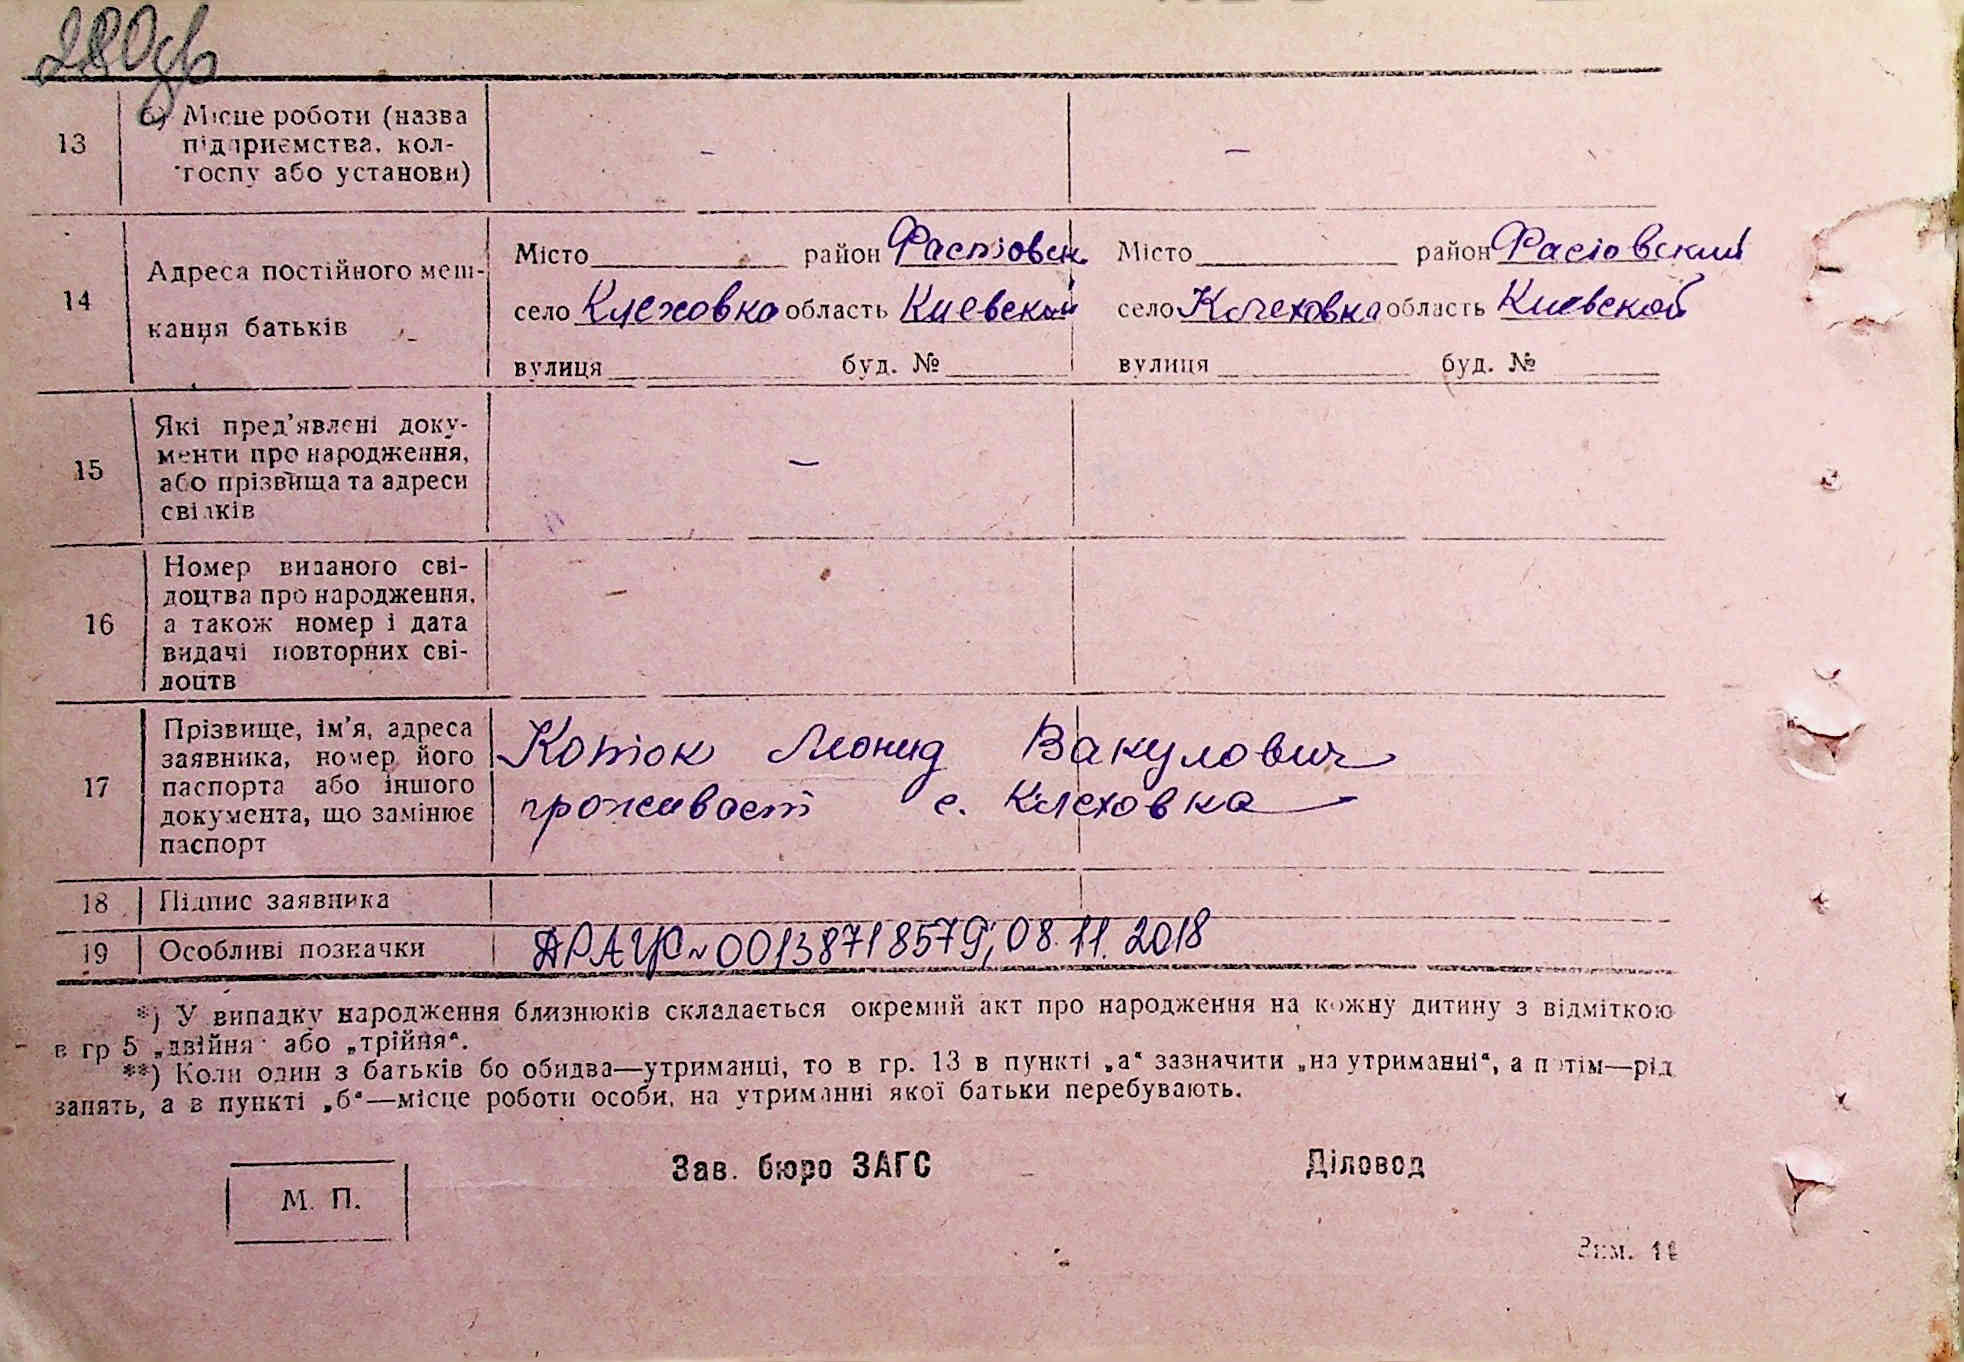 280зв
13
б) Місце роботи (назва
підприємства, кол-
госпу або установи)
-
-
14
Адреса постійного меш-
кання батьків
Місто район Фастовск.
село Клеховка область Киевский
вулиця буд. №
Місто район Фастовский
село Клеховка область Киевской
вулиця буд. №
15
Які пред'явлені доку-
менти про народження,
або прізвища та адреси
свідків
-
16
Номер виданого сві-
доцтва про народження,
а також номер і дата
видачі повторних сві-
доцтв
17
Прізвище, ім'я, адреса
заявника, номер його
паспорта або іншого
документа, що замінює
паспорт
Котюк Леонид Вакулович
проживает с. Клеховка
18
Підпис заявника
19
Особливі позначки
ДРАЦС № 00138718579; 08.11.2018
*) У випадку народження близнюків складається окремий акт про народження на кожну дитину з відміткою
в гр 5 „двійня" або „трійня".
**) Коли один з батьків бо обидва—утриманці, то в гр. 13 в пункті „а" зазначити „на утриманні", а потім—рід
занять, а в пункті „б"—місце роботи особи, на утриманні якої батьки перебувають.
М. П.
Зав. бюро ЗАГС
Діловод
Зам. 11